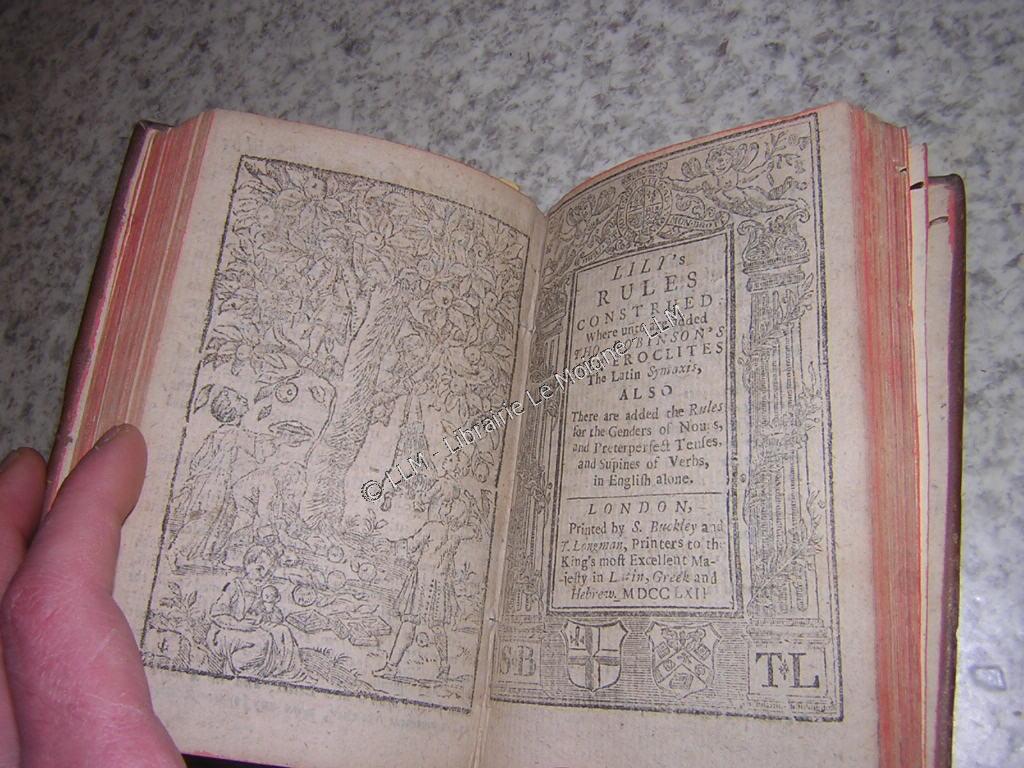 LILY's
RULES
CONSTRUED:
Where unto added
THO. ROBINSON'S
HETEROCLITES
The Latin Syntaxis,
ALSO
There are added the Rules
for the Genders of Nouns,
and Preterperfect Tenses,
and Supines of Verbs,
in English alone.
LONDON,
Printed by S. Buckley and
T. Longman, Printers to th
King's most Excellent Ma-
jesty in Latin, Greek and
Hebrew. MDCCLXII
S·B
T·L
© LLM - Librairie Le Moine - LLM